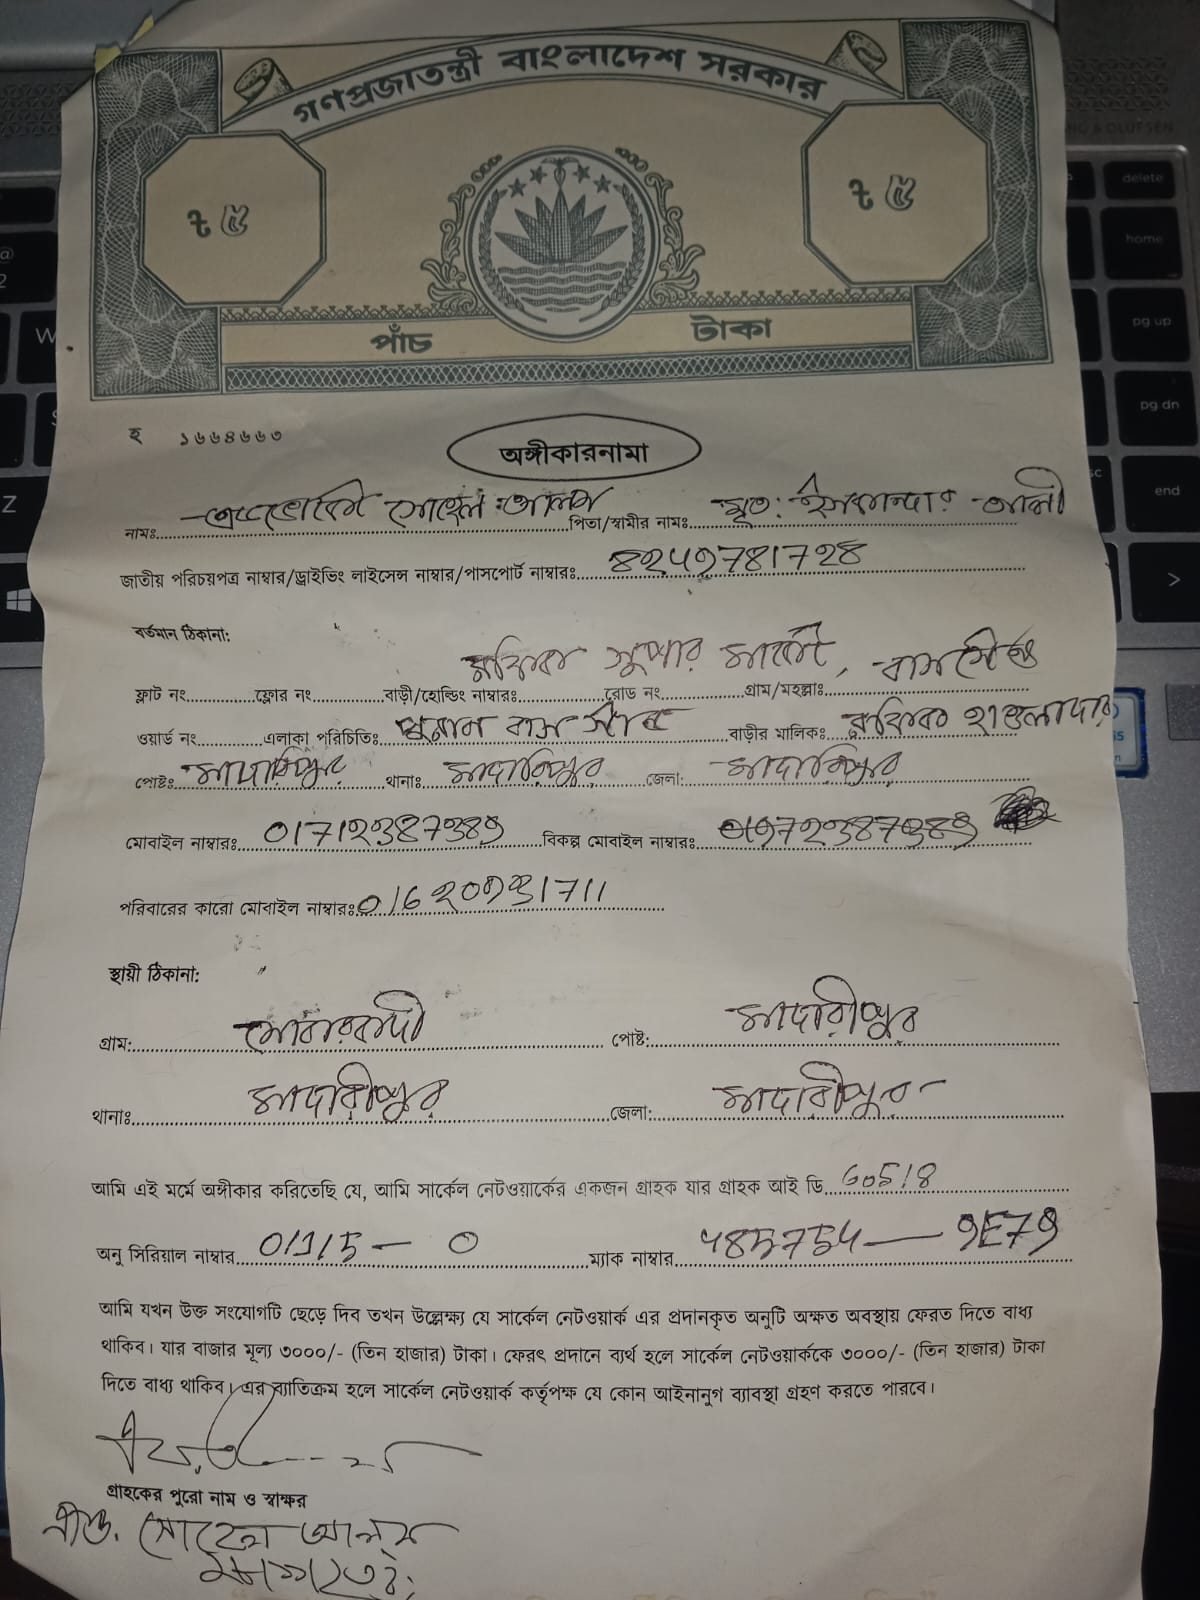 গণপ্রজাতন্ত্রী বাংলাদেশ সরকার
৳ ৫ ৳ ৫
পাঁচ টাকা
হ ১৬৬৪৬৬৩
অঙ্গীকারনামা
নামঃ এডভোকেট সোহেল আলম পিতা/স্বামীর নামঃ মৃত: ইসকান্দার আলী
জাতীয় পরিচয়পত্র নাম্বার/ড্রাইভিং লাইসেন্স নাম্বার/পাসপোর্ট নাম্বারঃ
বর্তমান ঠিকানা:
সুপার মার্কেট,
ফ্লাট নং ফ্লোর নং বাড়ী/হোল্ডিং নাম্বারঃ রোড নং গ্রাম/মহল্লাঃ
ওয়ার্ড নং এলাকা পরিচিতিঃ পুরান বাস স্ট্যান্ড বাড়ীর মালিকঃ হাওলাদার
পোষ্টঃ মাদারিপুর থানাঃ মাদারিপুর জেলা: মাদারিপুর
মোবাইল নাম্বারঃ 01712387389 বিকল্প মোবাইল নাম্বারঃ
পরিবারের কারো মোবাইল নাম্বারঃ
স্থায়ী ঠিকানা:
গ্রাম: পোষ্ট: মাদারীপুর
থানাঃ মাদারীপুর জেলা: মাদারীপুর
আমি এই মর্মে অঙ্গীকার করিতেছি যে, আমি সার্কেল নেটওয়ার্কের একজন গ্রাহক যার গ্রাহক আই ডি 60518
অনু সিরিয়াল নাম্বার 0/1/5 — 0 ম্যাক নাম্বার
আমি যখন উক্ত সংযোগটি ছেড়ে দিব তখন উল্লেক্ষ্য যে সার্কেল নেটওয়ার্ক এর প্রদানকৃত অনুটি অক্ষত অবস্থায় ফেরত দিতে বাধ্য
থাকিব। যার বাজার মূল্য ৩০০০/- (তিন হাজার) টাকা। ফেরৎ প্রদানে ব্যর্থ হলে সার্কেল নেটওয়ার্ককে ৩০০০/- (তিন হাজার) টাকা
দিতে বাধ্য থাকিব। এর ব্যাতিক্রম হলে সার্কেল নেটওয়ার্ক কর্তৃপক্ষ যে কোন আইনানুগ ব্যাবস্থা গ্রহণ করতে পারবে।
গ্রাহকের পুরো নাম ও স্বাক্ষর
এড. সোহেল আলম
delete
home
pg up
pg dn
end